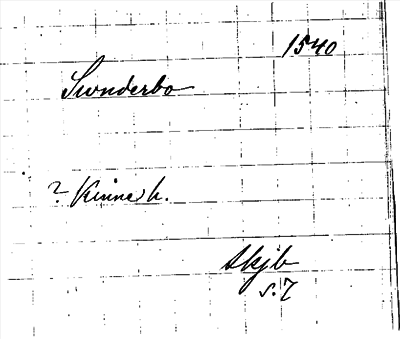 1540
Svonderbo
? Kinne h.
Skjb
s. 7